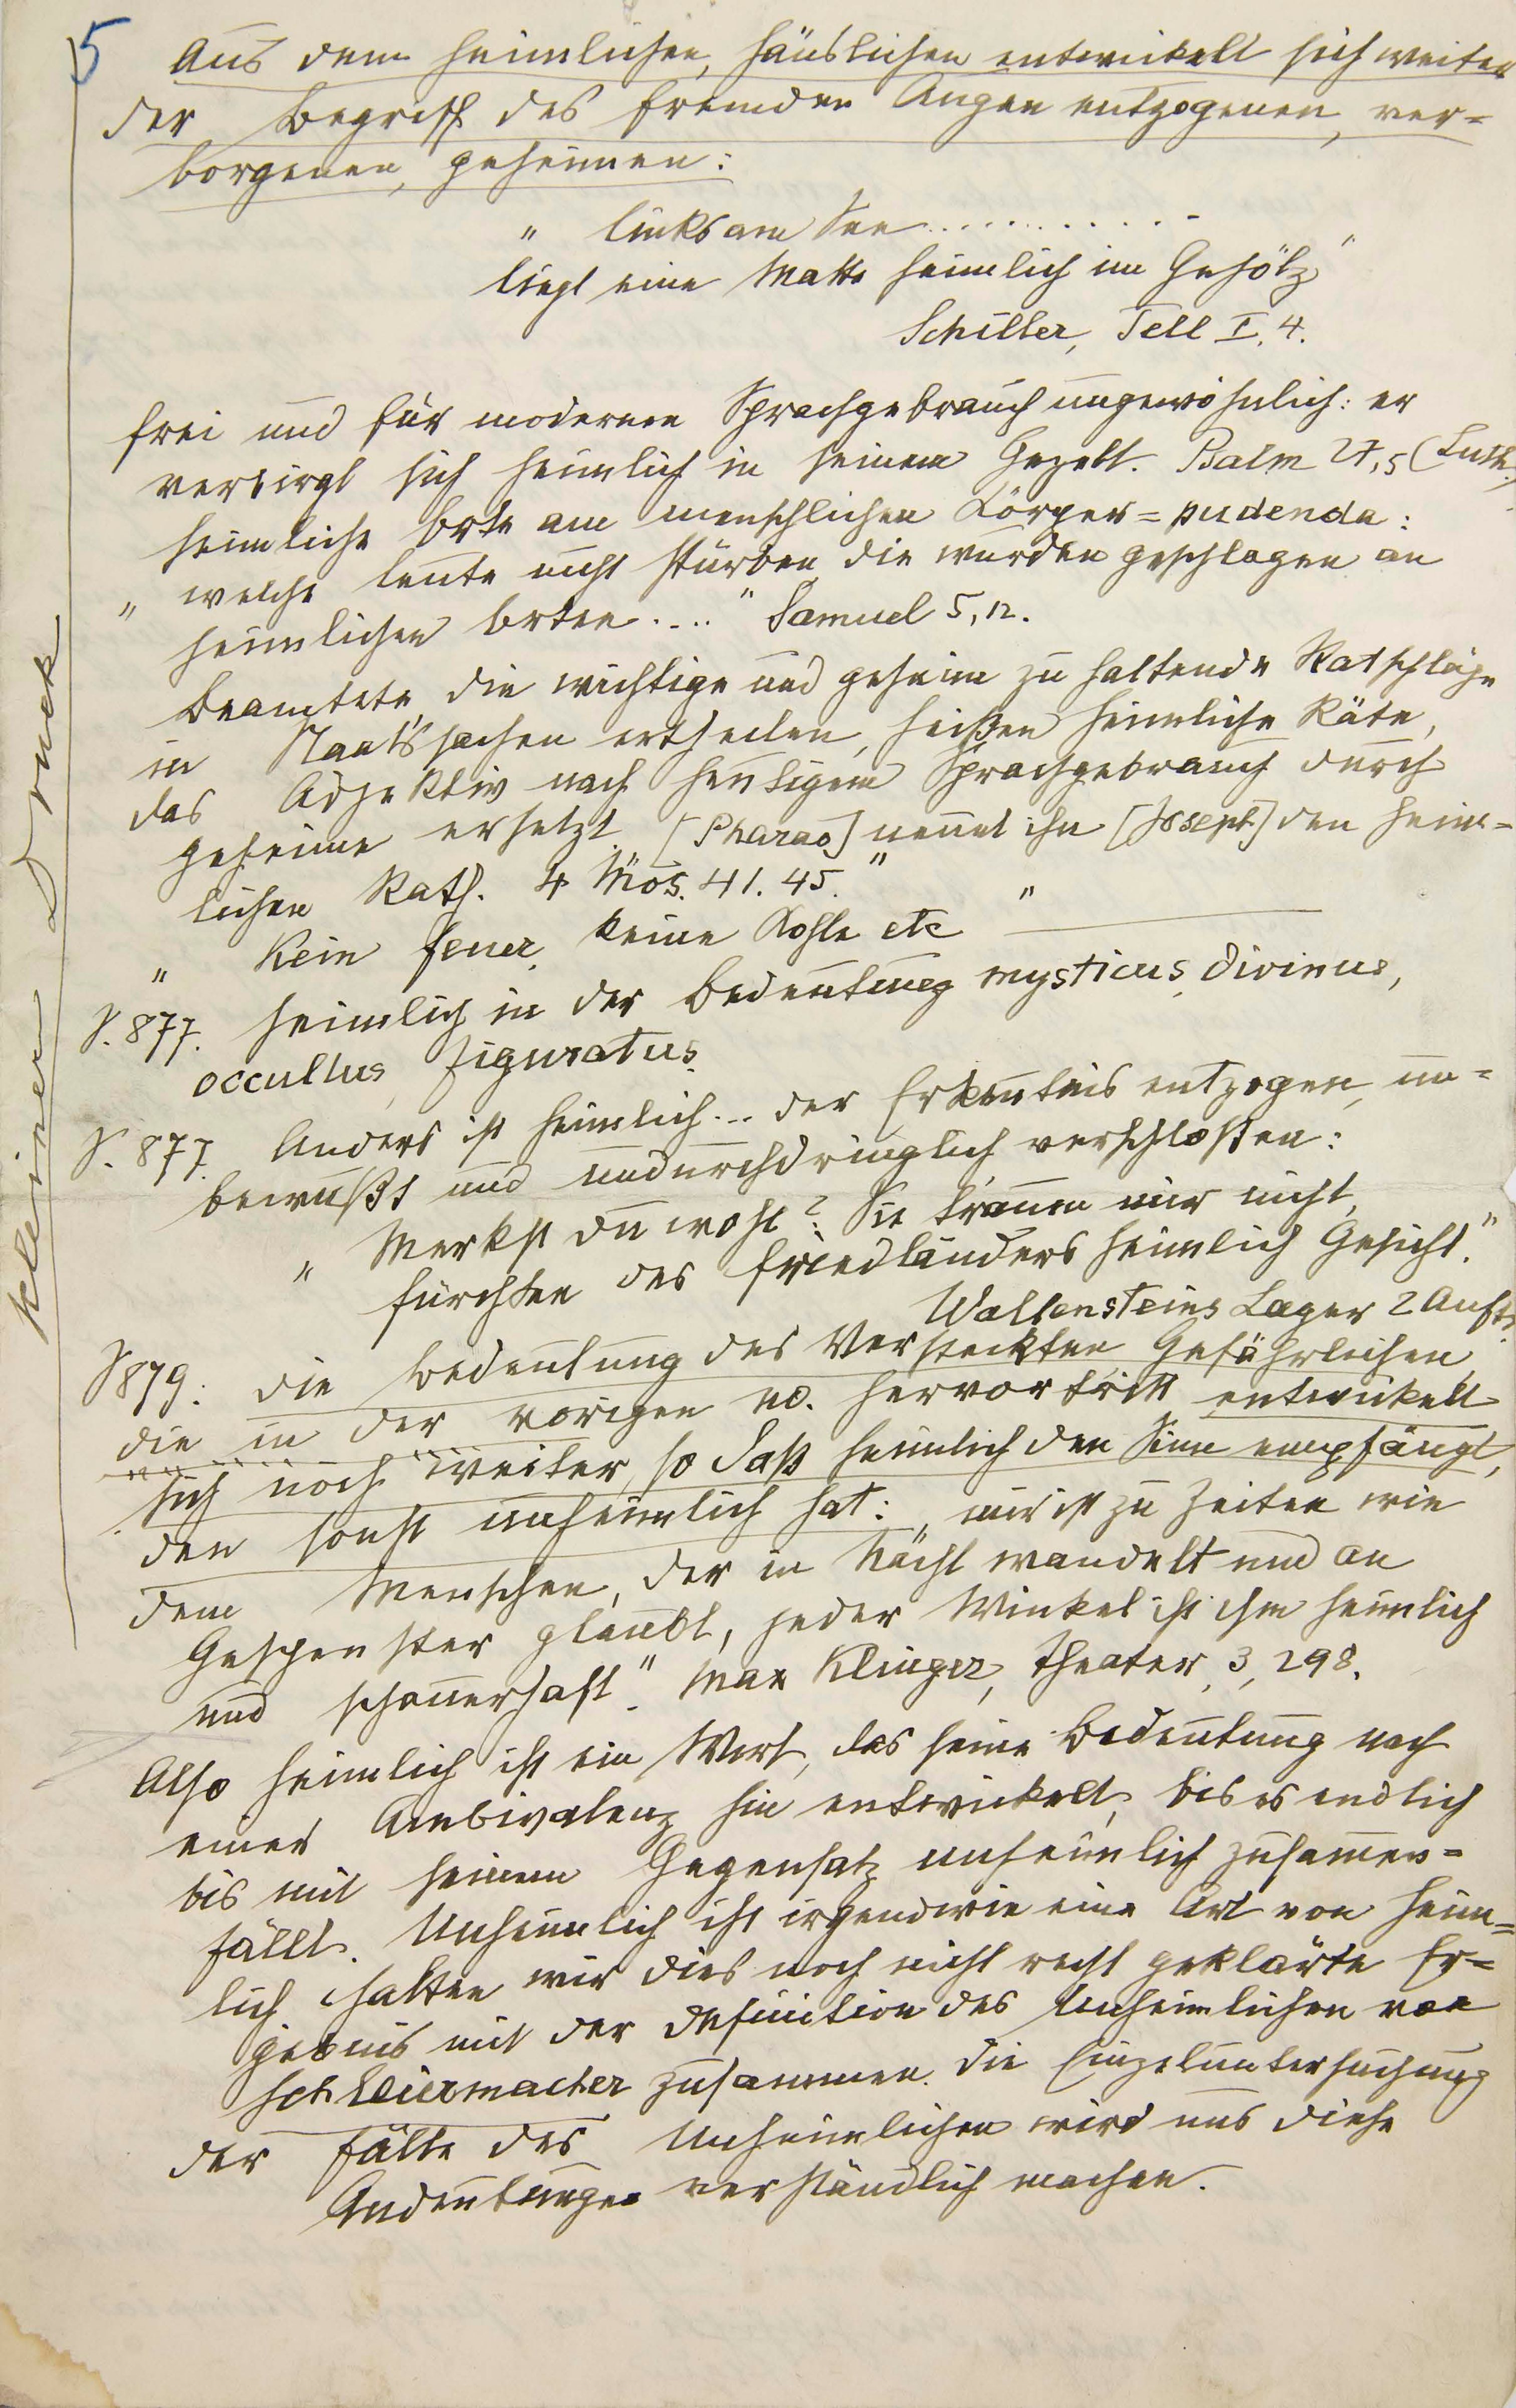 5 Aus dem heimlichen, häuslichen entwickelt sich weiter
der Begriff des fremden Augen entzogenen, ver=
borgenen, geheimen:
„ links am See ...........
liegt eine Matte heimlich im Gehölz"
Schiller, Tell I, 4.
frei und für modernen Sprachgebrauch ungewöhnlich: er
verbirgt sich heimlich in seinem Gezelt. Psalm 27,5 (Luth.)
heimliche Orte am menschlichen Körper = pudenda:
„ welche leute nicht stürben, die wurden geschlagen an
heimlichen Orten...." Samuel 5,12.
Beamtete, die wichtige und geheim zu haltende Ratschläge
in Staatssachen ertheilen, heißen heimliche Räte,
das Adjektiv nach heutigem Sprachgebrauch durch
geheime ersetzt. [Pharao] nennet ihn [Joseph] den heim=
lichen Rath. 4 Mos. 41.45."
„ Kein feuer, keine Kohle etc "
S. 877. heimlich in der Bedeutung mysticus, divinus,
occultus, figuratus.
S. 877. Anders ist heimlich... der Erkentnis entzogen, un=
bewußt und undurchdringlich verschlossen:
„ Merkst du wohl? Sie trauen mir nicht,
fürchten des friedländers heimlich Gesicht."
Wallensteins Lager 2 Auft.
S 879: die Bedeutung des Versteckten Gefährlichen,
die in der vorigen no. hervortritt entwickelt
sich noch weiter, so daß heimlich den Sinn empfängt,
den sonst unheimlich hat: „ mir ist zu Zeiten wie
dem Menschen, der in Nacht wandelt und an
Gespenster glaubt, jeder Winkel ist ihm heimlich
und schauerhaft". Max Klinger, Theater, 3, 298.
Also heimlich ist ein Wort, das seine Bedeutung nach
einer Ambivalenz hin entwickelt, bis es endlich
bis mit seinem Gegensatz unheimlich zusammen=
fällt. Unheimlich ist irgendwie eine Art von heim=
lich. halten wir dies noch nicht recht geklärte Er=
gebnis mit der Definition des Unheimlichen von
Schleiermacher zusammen. Die Einzeluntersuchung
der fälle des Unheimlichen wird uns diese
Andeutungen verständlich machen.
kleiner Druck